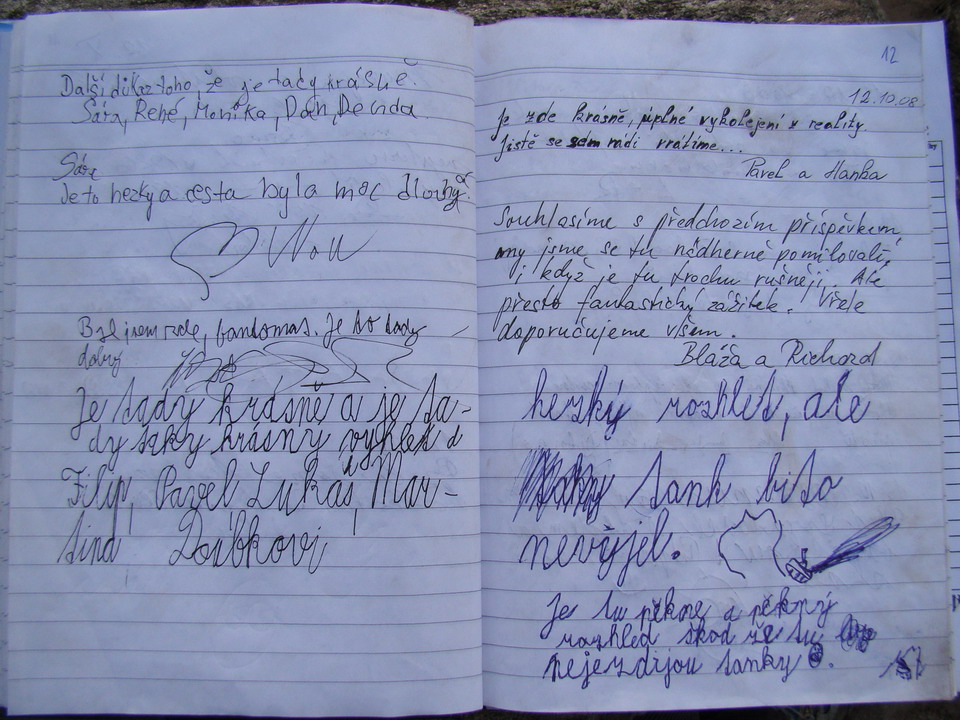 Další důkaz toho, že je tady krásně.
Sára, René, Monika, Dan, Decnda
Sára
Je to hezky a cesta byla moc dlouhá.
Byl jsem zde, fantomas. Je to tady
dobrý
Je tady krásně a je ta-
dy taky krásný výhled
Filip, Pavel, Lukáš, Mar-
tina Doubkovi
12
12.10.08
Je zde krásně, úplné vykolejení z reality.
Jistě se sem rádi vrátíme...
Pavel a Hanka
Souhlasíme s předchozím příspěvkem,
my jsme se tu nádherně pomilovali,
i když je tu trochu rušněji. Ale
přesto fantastický zážitek. Vřele
doporučujeme všem.
Bláža a Richard
hezký rozhled, ale
tank bito
nevyjel.
Je tu pěkne a pěkný
rozhled škod že tu
nejezdijou tanky.